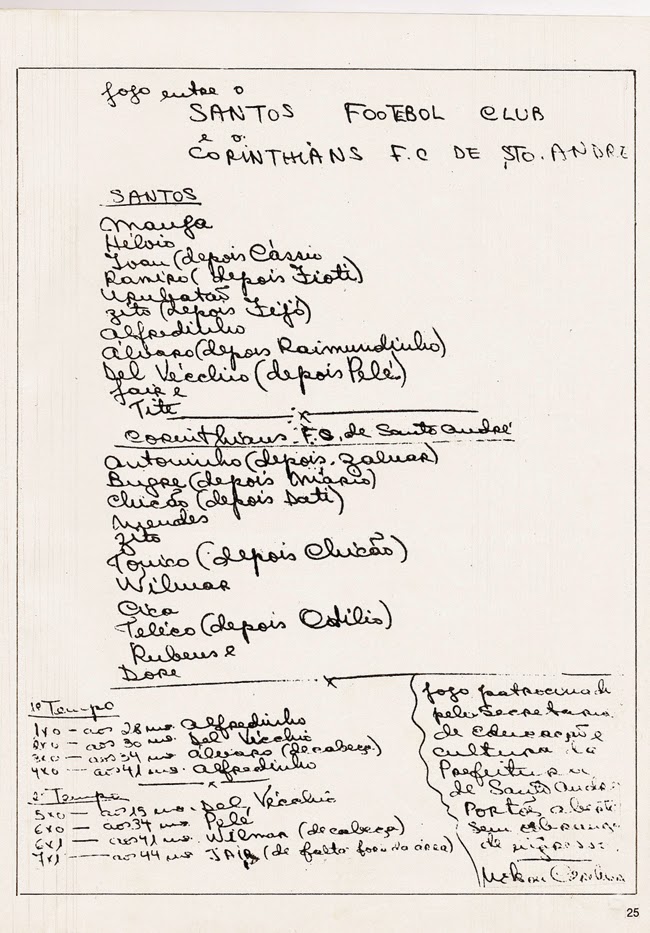 Jogo entre o
SANTOS FOOTEBOL CLUB
e o
CORINTHIANS F.C DE STO. ANDRÉ
SANTOS
Manga
Hélvio
Ivan (depois Cássio
Ramiro (depois Fioti)
Urubatão
Zito (depois Feijó)
Alfredinho
Álvaro (depois Raimundinho)
Del Vécchio (depois Pelé.)
Jair e
Tite
Corinthians F.C. de Santo André
Antoninho (depois Zaluar)
Bugre (depois Mário)
Chicão (depois Dati)
Mendes
Zito
Tonico (depois Chicão)
Wilmar
Cica
Teléco (depois Odilio)
Rubens e
Dore
1º Tempo
1x0 - aos 28 ms. Alfredinho
2x0 - aos 30 ms. Del Vécchio
3x0 - aos 34 ms. Álvaro (de cabeça.)
4x0 - aos 41 ms. Alfredinho
2º Tempo
5x0 - aos 15 ms. Del Vécchio
6x0 - aos 34 ms. Pelé
6x1 - aos 41 ms. Wilmar (de cabeça)
7x1 - aos 44 ms JAIR (de falta fora da área)
Jogo patrocinado
pela Secretaria
de educação e
cultura da
Prefeitura
de Santo André
Portão aberto
sem cobrança
de ingresso.
25